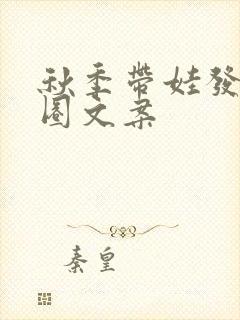 秋季带娃發
圈文案
秦皇